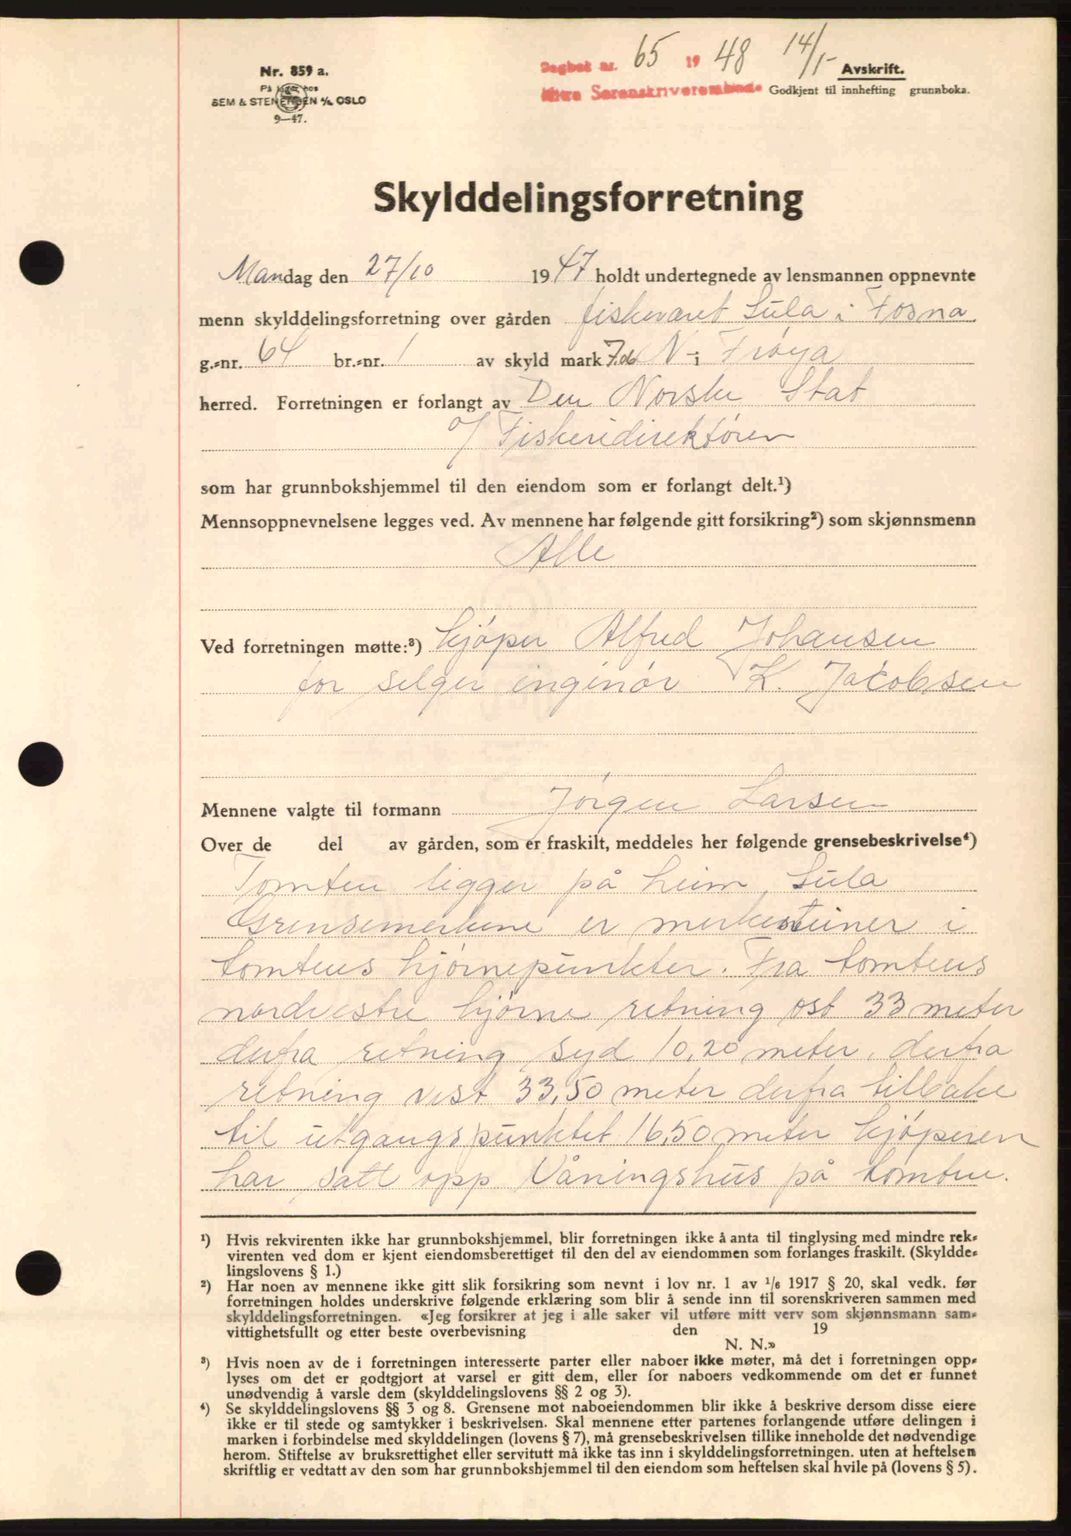 Nr. 859 a.
På lager hos
SEM & STENERSEN A/S OSLO
9—47.
Dagbok nr. 65 19 48 14/1-
Avskrift.
Sorenskriverembede
Godkjent til innhefting grunnboka.
Skylddelingsforretning
Mandag den 27/10 1947 holdt undertegnede av lensmannen oppnevnte
menn skylddelingsforretning over gården fiskeværet Sula i Fosna
g.-nr. 64 br.-nr. 1 av skyld mark 7.06 N-i Frøya
herred. Forretningen er forlangt av Den Norske Stat
v/ Fiskeridirektøren
som har grunnbokshjemmel til den eiendom som er forlangt delt.¹)
Mennsoppnevnelsene legges ved. Av mennene har følgende gitt forsikring²) som skjønnsmenn
Alle
Ved forretningen møtte:³) Kjøper Alfred Johansen
for selger inginør K. Jacobsen
Mennene valgte til formann Jørgen Larsen
Over de del av gården, som er fraskilt, meddeles her følgende grensebeskrivelse⁴)
Tomten ligger på heim, Sula
Grensemerkene er merkesteiner i
tomtens hjørnepunkter. Fra tomtens
nordvestre hjørne retning øst 33 meter
derfra retning syd 10,20 meter, derfra
retning vest 33,50 meter derfra tilbake
til utgangspunktet 16,50 meter kjøperen
har satt opp Våningshus på tomten.
¹) Hvis rekvirenten ikke har grunnbokshjemmel, blir forretningen ikke å anta til tinglysing med mindre rek-
virenten ved dom er kjent eiendomsberettiget til den del av eiendommen som forlanges fraskilt. (Skyldde-
lingslovens § 1.)
²) Har noen av mennene ikke gitt slik forsikring som nevnt i lov nr. 1 av 1/6 1917 § 20, skal vedk. før
forretningen holdes underskrive følgende erklæring som blir å sende inn til sorenskriveren sammen med
skylddelingsforretningen. «Jeg forsikrer at jeg i alle saker vil utføre mitt verv som skjønnsmann sam-
vittighetsfullt og etter beste overbevisning den 19
N. N.»
³) Hvis noen av de i forretningen interesserte parter eller naboer ikke møter, må det i forretningen opp-
lyses om det er godtgjort at varsel er gitt dem, eller for naboers vedkommende om det er funnet
unødvendig å varsle dem (skylddelingslovens §§ 2 og 3).
⁴) Se skylddelingslovens §§ 3 og 8. Grensene mot naboeiendommen blir ikke å beskrive dersom disse eiere
ikke er til stede og samtykker i beskrivelsen. Skal mennene etter partenes forlangende utføre delingen i
marken i forbindelse med skylddelingen (lovens § 7), må grensebeskrivelsen tillike inneholde det nødvendige
herom. Stiftelse av bruksrettighet eller servitutt må ikke tas inn i skylddelingsforretningen. uten at heftelsen
skriftlig er vedtatt av den som har grunnbokshjemmel til den eiendom som heftelsen skal hvile på (lovens § 5).